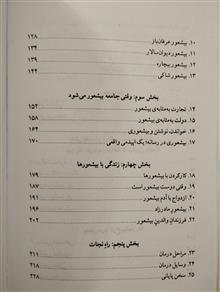 ۱۰. بیشعور عرفان‌باز ۱۲۸
۱۱. بیشعور دیوان‌سالار ۱۳۴
۱۲. بیشعور بیچاره ۱۳۹
۱۳. بیشعور شاکی ۱۴۴
بخش سوم: وقتی جامعه بیشعور می‌شود
۱۴. تجارت به‌مثابه‌ی بیشعور ۱۵۲
۱۵. دولت به‌مثابه‌ی بیشعور ۱۵۸
۱۶. خواندن، نوشتن و بیشعوری ۱۶۴
۱۷. بیشعوری در رسانه؛ یک اپیدمی واقعی ۱۷۰
بخش چهارم: زندگی با بیشعورها
۱۸. کارکردن با بیشعورها ۱۷۹
۱۹. وقتی دوست بیشعور است ۱۸۷
۲۰. ازدواج با آدم بیشعور ۱۹۱
۲۱. بیشعور مادرزاد ۱۹۷
۲۲. فرزندان والدین بیشعور ۲۰۲
بخش پنجم: راه نجات
۲۳. مراحل درمان ۲۱۱
۲۴. وسایل درمان ۲۱۶
۲۵. سخن پایانی ۲۲۸